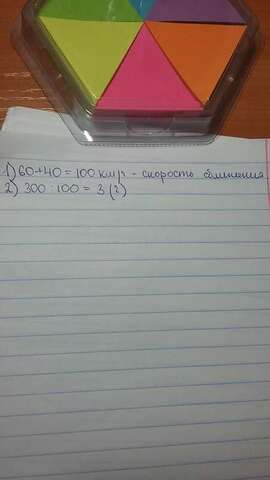 1) 60+40 = 100 км/г - скорость сближения
2) 300 : 100 = 3 (г)